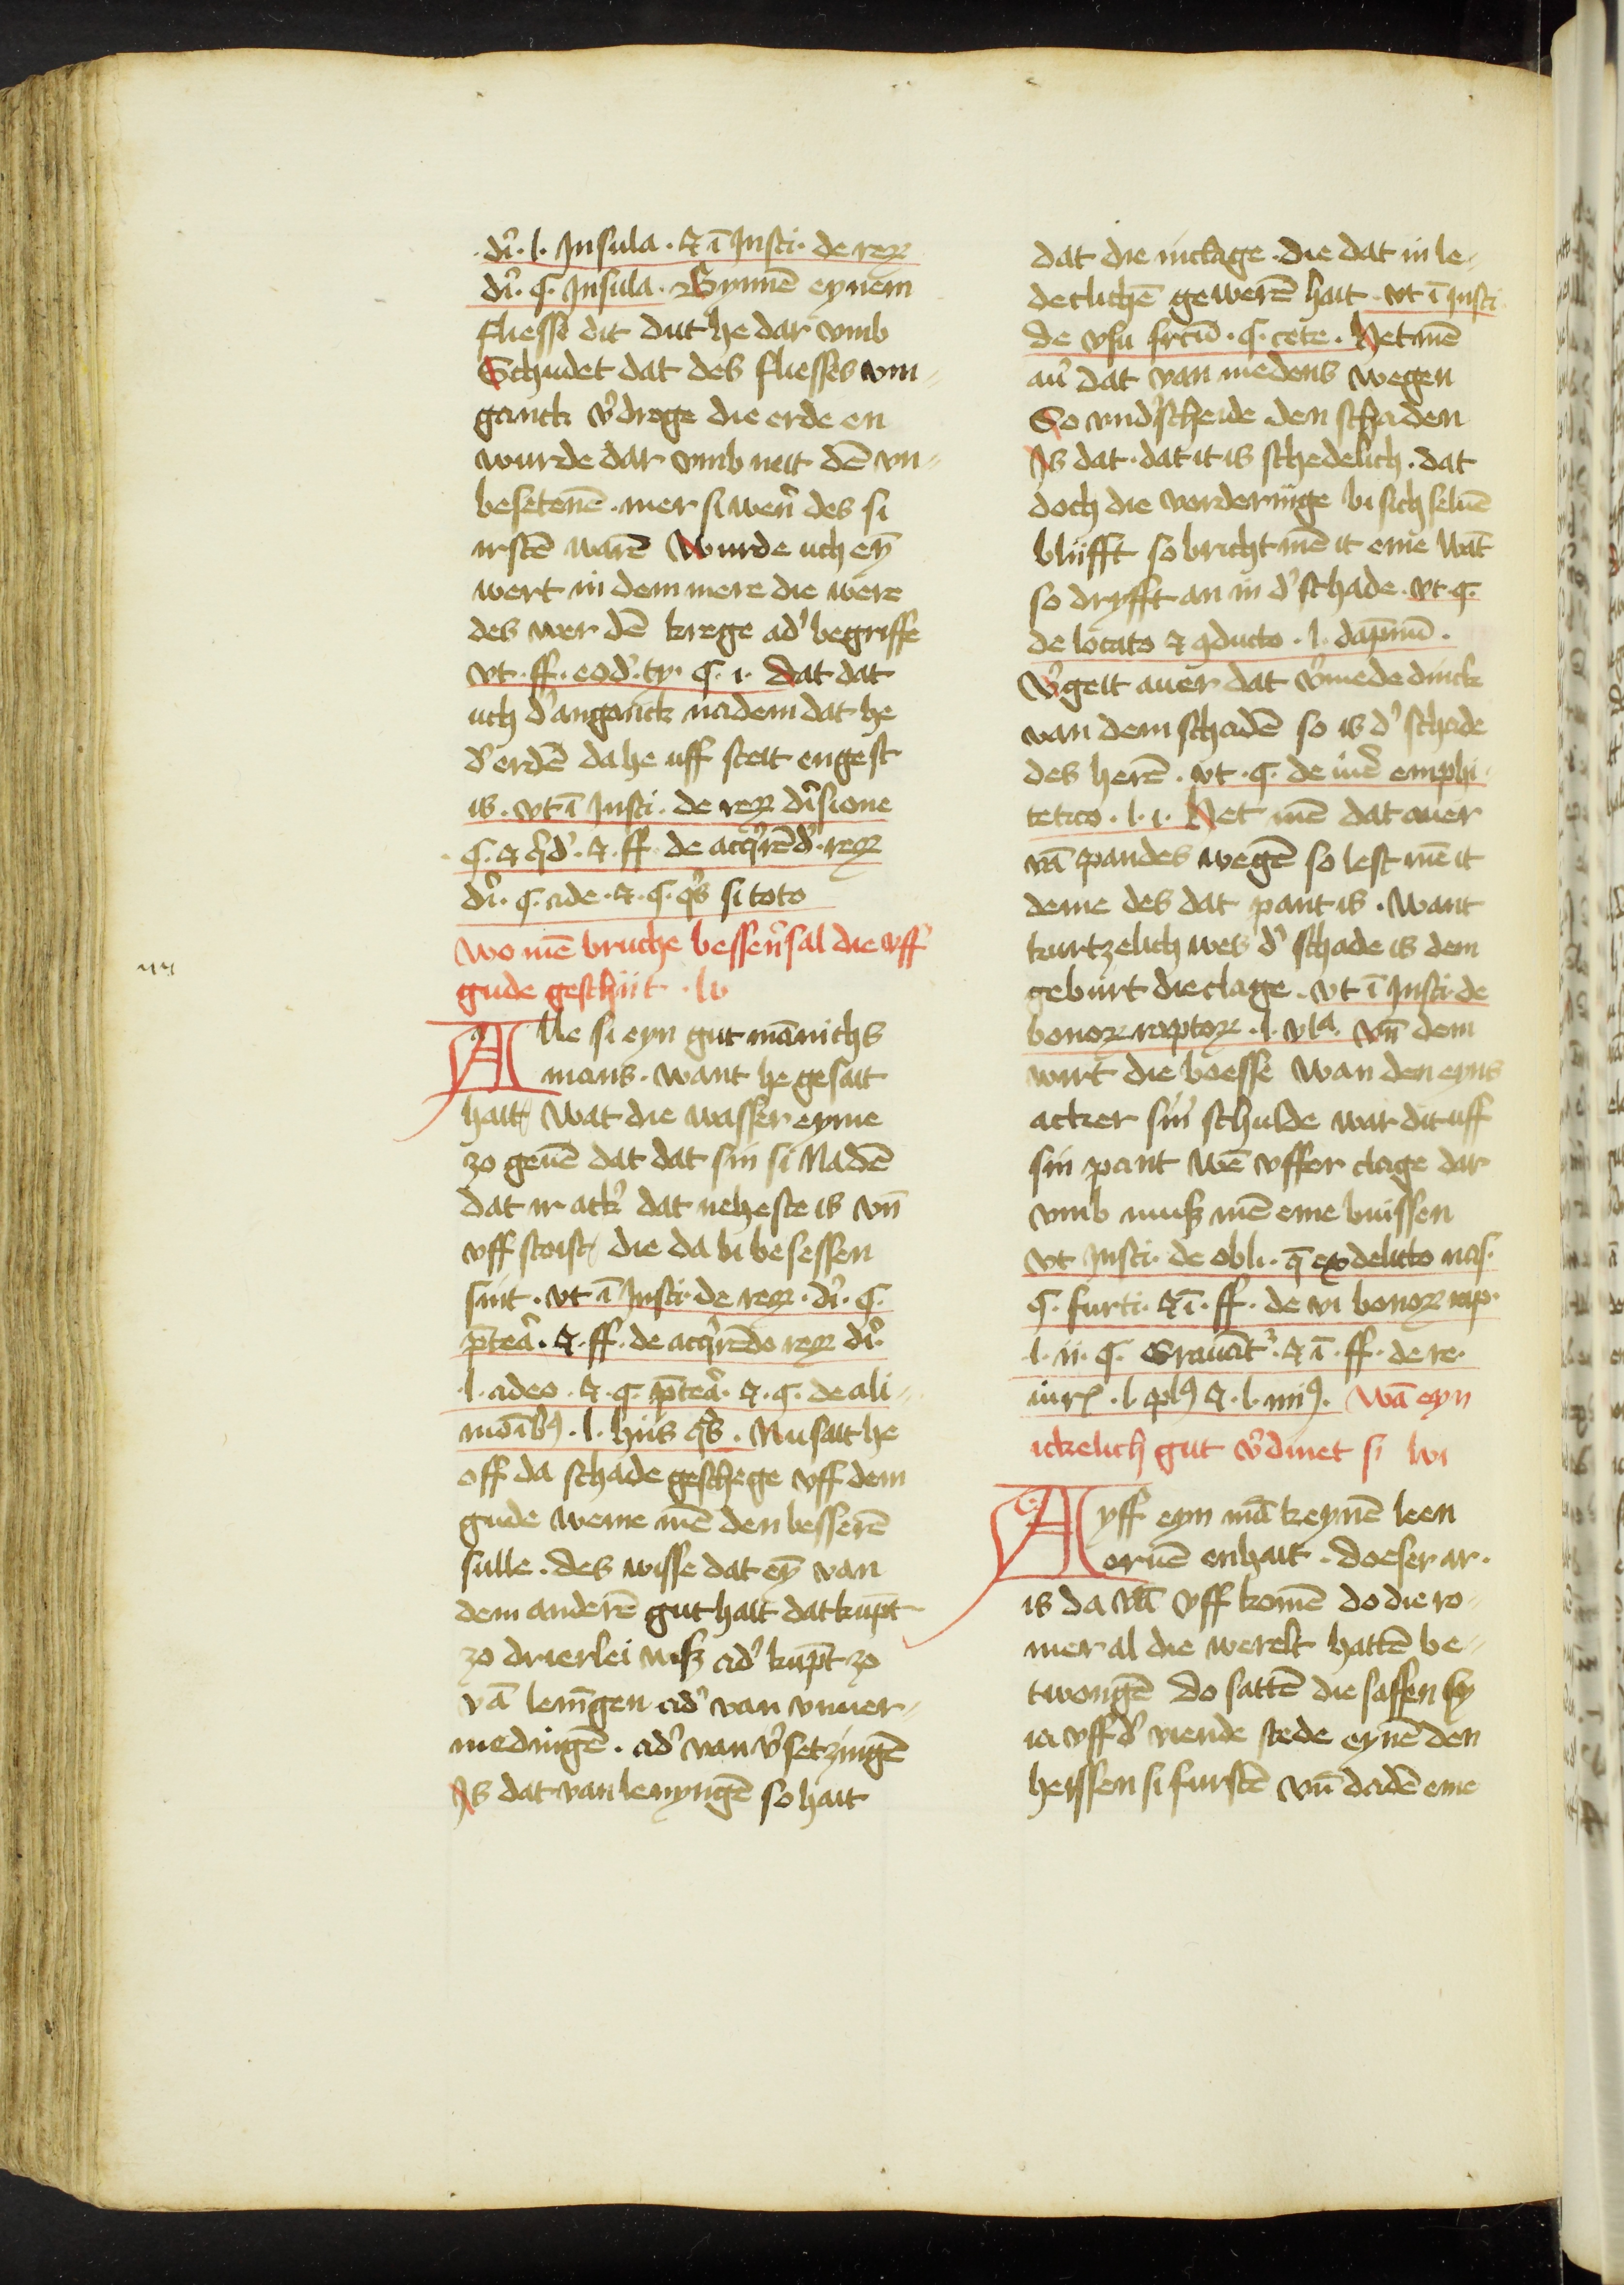 di᷑. l. Insula. ⁊ ī Insti. de reꝝ
di᷑. ꝯ. Insula. Bynnē eynem
fliesse dit dut he dar vmb
Schudet dat des fliesses vm-
ganck v᷑drege die erde en
wurde dar vmb neit dē vn-
besetenē. mer si wer᷑ des si
irstē warē Wurde uch eȳ
wert in dem mere die were
des wer dē krege ad᷑ begriffe
vt. ff. eod᷑. ty. ꝯ. i. dat dat
uch d᷑ anganck nadem dat he
d᷑ erdē da he uff steit engest
is. vt ī Insti. de reꝝ di᷑sione
ꝯ. ⁊ qd᷑. ⁊. ff. de acq᷑rēd᷑. reꝝ
di᷑. ꝯ. ade. ⁊. ꝯ. qs᷑ si toto
Wo mē bruche besser᷑ sal die vff
gude geschiit. lv
Alle si eyn gut mānichs
mans. want he gesait
hait Wat die wasser eyme
zo geuē dat dat sin si Nadē
dat ir ack᷑ dat neheste is vn̄
vff stoist die da bi besessen
sint. vt ī Insti. de reꝝ. di᷑. ꝯ.
p̄teā᷑. ⁊. ff. de acq᷑rēdo reꝝ di᷑.
l. adeo. ⁊. ꝯ. p̄teā᷑. ⁊. ꝯ. de ali-
moībꝰ. l. hiis qb᷑. Nu sait he
off da schade geschege vff dem
gude weme mē den besserē
sulle. des wisse dat eȳ van
dem anderē gut hait dat kūpt
zo drierlei wiß ad᷑ kūpt zo
vā lenīgen ad᷑ van vnuer-
medingē. ad᷑ van v᷑setzingē
Is dat van lenyngē so hait
dat die inclage. die dat in le-
detlichē gewerē hait. vt ī Insti.
de vsu frctū. ꝯ. cete. Het mē
au᷑ dat van medens wegen
So vnd᷑scheide den schaden
Is dat. dat it is schedelich. dat
doch die vorderūge bi sich seluē
blifft so bricht mē it eme Wāt
so dryfft an in d᷑ schade. vt. ꝯ.
de locato ⁊ ꝯducto. l. dāpnū.
V᷑geit auer dat v᷑mede dinck
van dem schadē so is d᷑ schade
des herē. vt. ꝯ. de iur᷑ emphi-
tetico. l. i. Het mē dat auer
vā pandes wegē so lest mē it
deme des dat pant is. Want
kurtzelich wes d᷑ schade is dem
geburt die clage. vt ī Insti. de
bonoꝝ raptoꝝ. l. vla. vn̄ dem
wirt die boesse Wan den eyns
acker sin᷑ schulde war dit uff
sin pant wē vffer clage dar
vmb muß mē eme buissen
vt Insti. de obli. q̄ ex delicto nas.
ꝯ. furti. ⁊ ī. ff. de vi bonoꝝ rap.
l. ii. ꝯ. Grauat᷑. ⁊ ī. ff. de re.
iur͛. l. plꝰ ⁊. l. miꝰ. Wā eyn
ickelich gut v᷑dinet si lvi
Ayff eyn mā keynē leen
eruē enhait. doeser ar.
is da vā vff komē do die ro-
mer al die werelt hattē be-
twongē do sattē die sassen sy
ia vff d᷑ viende stede eynē den
heissen si furstē vn̄ dadē eme